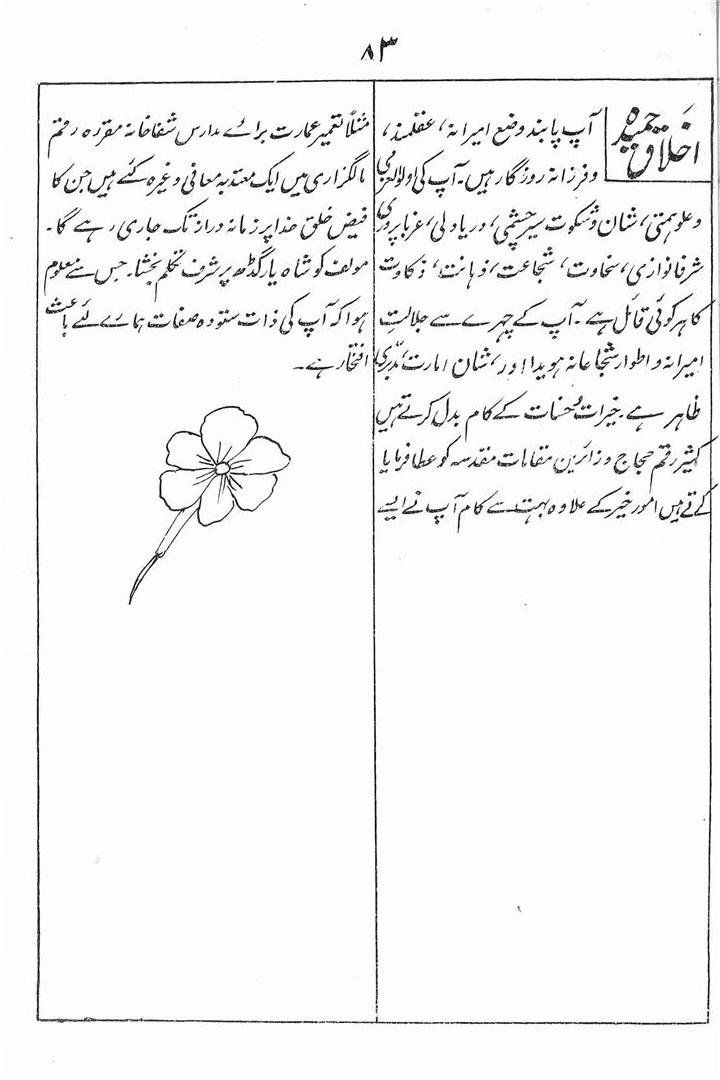 ۸۳
اخلاق حمیدہ
آپ پابند وضع امیرانہ، عقلمند،
و فرزانہ روزگار ہیں۔ آپ کی اولوالعزمی
و علو ہمتی، شان و شکوت سیر چشمی، دریا دلی، غربا پروری
شرفا نوازی، سخاوت، شجاعت، ذہانت، ذکاوت
کا ہر کوئی قائل ہے۔ آپ کے چہرے سے جلالت
امیرانہ و اطوار شجاعانہ ہویدا اور، شان امارت، مدبری
ظاہر ہے۔ خیرات و حسنات کے کام بدل کرتے ہیں
کثیر رقم حجاج و زائرین مقامات مقدسہ کو عطا فرمایا
کرتے ہیں امور خیر کے علاوہ بہت سے کام آپ نے ایسے
مثلاً تعمیر عمارت برائے مدارس شفاخانہ مقررہ رقم
مالگزاری میں ایک معتد بہ معافی وغیرہ کئے ہیں جن کا
فیض خلق خدا پر زمانہ دراز تک جاری رہے گا۔
مولف کو شاہ یار گڈھ پر شرف تکلم بخشا۔ جس سے معلوم
ہوا کہ آپ کی ذات ستودہ صفات ہمارے لئے باعث
افتخار ہے۔